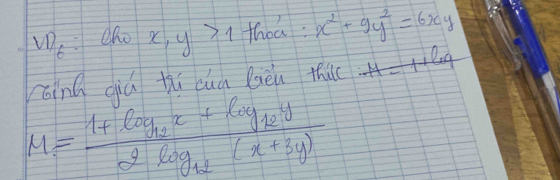 VD6: Cho x, y > 1 thoả: x² + 9y² = 6xy
Tính giá trị của biểu thức:
M = (1 + log₁₂x + log₁₂y) / (2 log₁₂ (x + 3y))